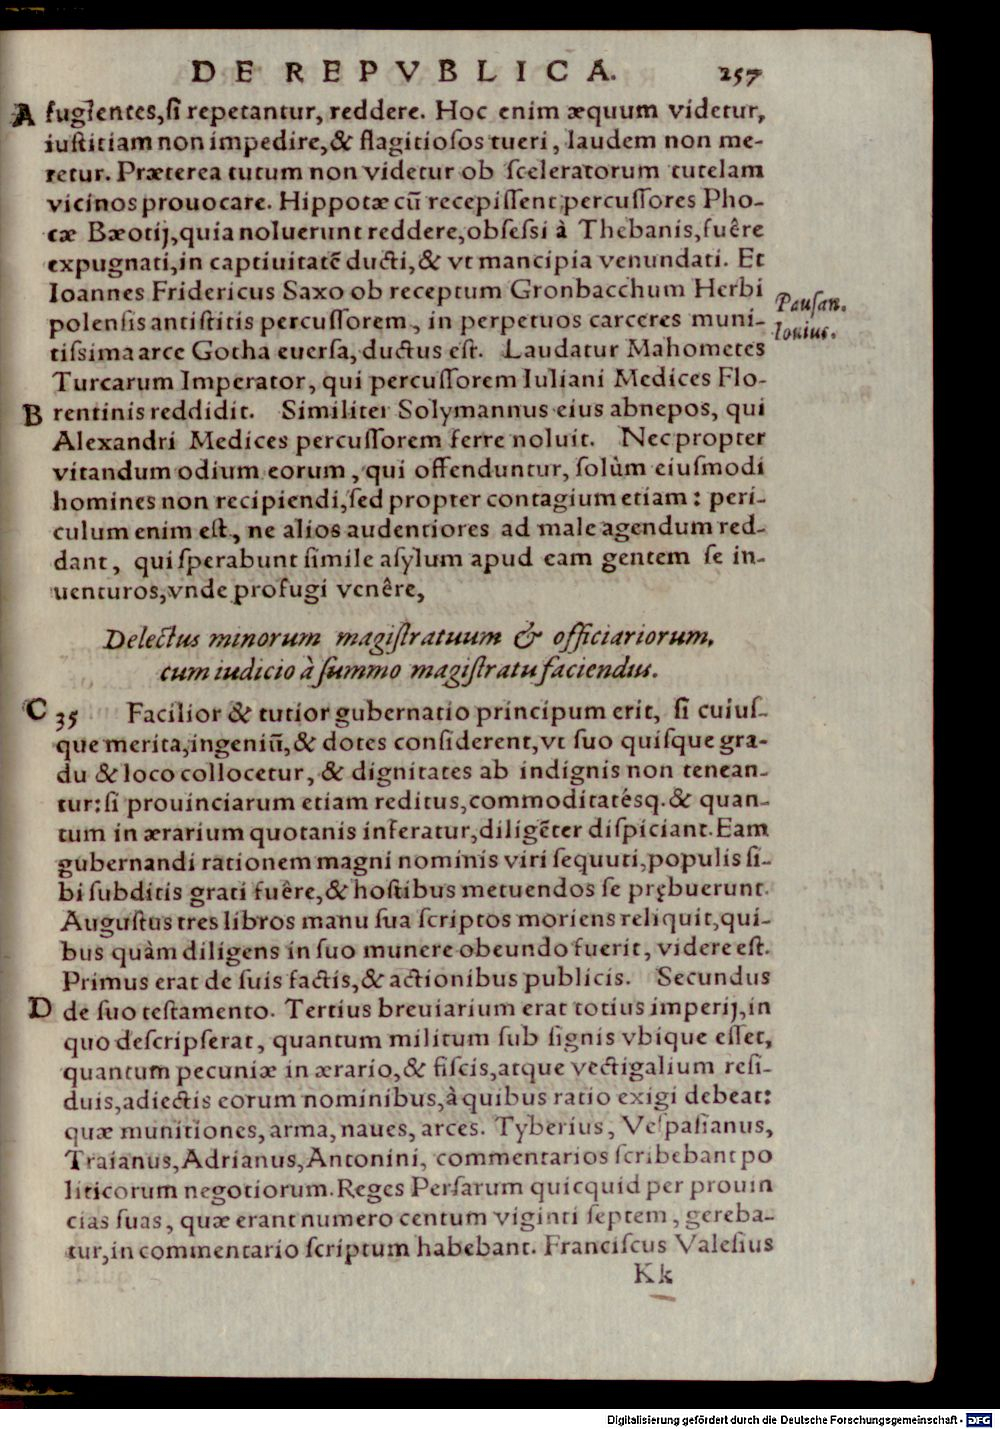 DE REPVBLICA. 257
A fugientes, si repetantur, reddere. Hoc enim æquum videtur,
iustitiam non impedire, & flagitiosos tueri, laudem non me-
retur. Præterea tutum non videtur ob sceleratorum tutelam
vicinos prouocare. Hippotæ cū recepissent percussores Pho-
cæ Bæotij, quia noluerunt reddere, obsessi à Thebanis, fuêre
expugnati, in captiuitatē ducti, & vt mancipia venundati. Et
Ioannes Fridericus Saxo ob receptum Gronbacchum Herbi
polensis antistitis percussorem, in perpetuos carceres muni-
tissima arce Gotha euersa, ductus est. Laudatur Mahometes
Turcarum Imperator, qui percussorem Iuliani Medices Flo-
B rentinis reddidit. Similiter Solymannus eius abnepos, qui
Alexandri Medices percussorem ferre noluit. Nec propter
vitandum odium eorum, qui offenduntur, solùm eiusmodi
homines non recipiendi, sed propter contagium etiam: peri-
culum enim est, ne alios audentiores ad male agendum red-
dant, qui sperabunt simile asylum apud eam gentem se in-
uenturos, vnde profugi venêre,
Pausan.
Iouius.
Delectus minorum magistratuum & officiariorum,
cum iudicio à summo magistratu faciendus.
C 35 Facilior & tutior gubernatio principum erit, si cuius-
que merita, ingeniū, & dotes considerent, vt suo quisque gra-
du & loco collocetur, & dignitates ab indignis non tenean-
tur: si prouinciarum etiam reditus, commoditatésq. & quan-
tum in ærarium quotanis inferatur, diligēter dispiciant. Eam
gubernandi rationem magni nominis viri sequuti, populis si-
bi subditis grati fuêre, & hostibus metuendos se prębuerunt.
Augustus tres libros manu sua scriptos moriens reliquit, qui-
bus quàm diligens in suo munere obeundo fuerit, videre est.
Primus erat de suis factis, & actionibus publicis. Secundus
D de suo testamento. Tertius breuiarium erat totius imperij, in
quo descripserat, quantum militum sub signis vbique esset,
quantum pecuniæ in ærario, & fiscis, atque vectigalium resi-
duis, adiectis eorum nominibus, à quibus ratio exigi debeat:
quæ munitiones, arma, naues, arces. Tyberius, Vespasianus,
Traianus, Adrianus, Antonini, commentarios scribebant po
liticorum negotiorum. Reges Persarum quicquid per prouin
cias suas, quæ erant numero centum viginti septem, gereba-
tur, in commentario scriptum habebant. Franciscus Valesius
Kk
Digitalisierung gefördert durch die Deutsche Forschungsgemeinschaft - DFG